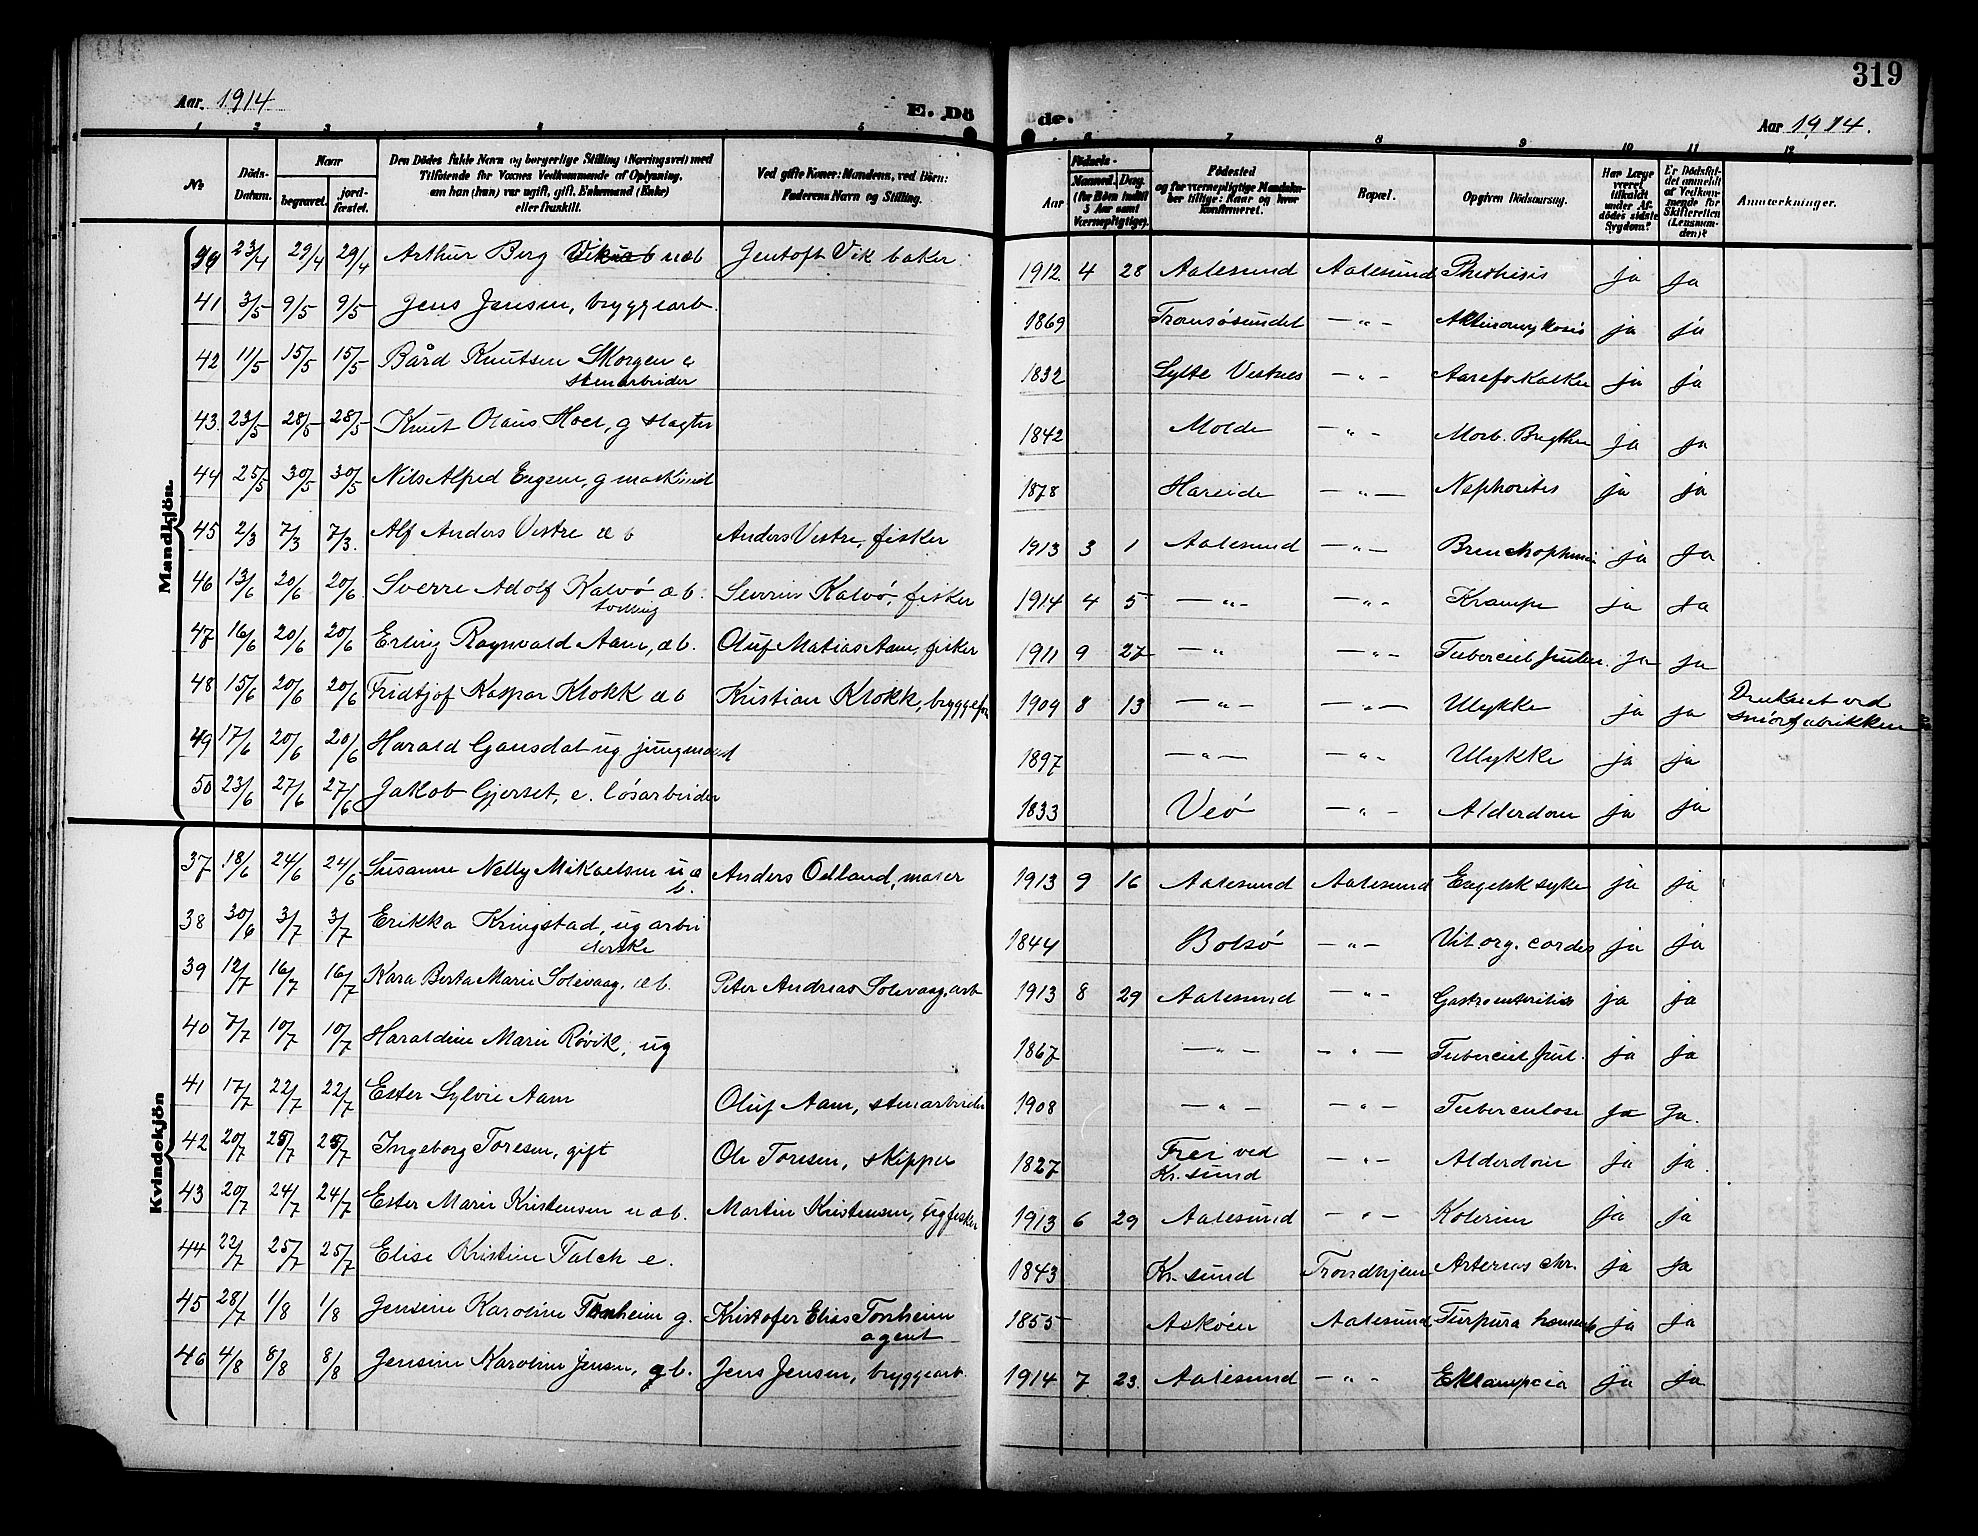 Aar 1914
E. Dö
de.
319
Aar 1914.
1 2 3 4 5 6 7 8 9 10 11 12
No
Döds-Datum.
Naar begravet. jord-fæstet.
Den Dödes fulde Navn og borgerlige Stilling (Næringsvei) med Tilföiende for Voxnes Vedkommende af Oplysning, om han (hun) var ugift, gift, Enkemand (Enke) eller fraskilt.
Ved gifte Koner: Mandens, ved Börn: Faderens Navn og Stilling.
Födsels- Aar Maaned. Dag. (for Börn indtil 5 Aar samt Værnepligtige).
Födested og for værnepligtige Mandskaber tillige: Naar og hvor konfirmeret.
Bopæl.
Opgiven Dödsaarsag.
Har Læge været tilkaldt under Afdödes sidste Sygdom?
Er Dödsfaldet anmeldt af Vedkommende for Skifteretten (Lensmanden)?
Anmærkninger.
Mandkjön.
23/4 29/4 29/4 Arthur Berg uæb Jentoft Vik baker. 1912 4 28 Aalesund Aalesund ja ja
41 3/5 9/5 9/5 Jens Jensen, bryggearb. 1869 Tromsösundet — " — Aktinomykosis ja ja
42 11/5 15/5 15/5 Bård Knutsen Skorgen e 1832 Sylte Vestnes — " — Aareforkalkn ja ja
stenarbeider
43 23/5 28/5 28/5 Knut Olaus Hoel, g slagter 1842 Molde — " — Morb. Brigthi ja ja
44 25/5 30/5 30/5 Nils Alfred g maskinist 1878 Hareide — " — Nephoritis ja ja
45 2/3 7/3 7/3. Alf Anders Vestre æ b Anders Vestre, fisker 1913 3 1 Aalesund — " — ja ja
46 13/6 20/6 20/6 Sverre Adolf Kalvö æ b. Severin Kalvö, fisker 1914 4 5 — " — — " — Krampe ja ja
tvilling
47 16/6 20/6 20/6 Erling Raynvald Aam, æ b. Oluf Matias Aam, fisker 1911 9 27 — " — " — Tubercul ja ja
48 15/6 20/6 20/6 Fridtjof Kaspar Klokk æ b Kristian Klokk, 1909 8 13 — " — — " — Ulykke ja ja Druknet ved
smörfabrikken
49 17/6 20/6 20/6 Harald Gausdal ug jungmand 1897 — " — — " — Ulykke ja ja
50 23/6 27/6 27/6 Jakob Gjerset, e. lösarbeider 1833 Veö — " — Alderdom ja ja
Kvindekjön
37 18/6 24/6 24/6 Susanne Nelly Mikaelsen u æ Anders Odland, maler 1913 9 16 Aalesund Aalesund Engelsk syke ja ja
b.
38 30/6 3/7 3/7 Erikka Kringstad, ug arbei 1844 Bolsö — " — Vit. org. cordis ja ja
derske
39 12/7 16/7 16/7 Kara Berta Marie Solevaag, æ b. Peter Andreas Solevaag, arb 1913 8 29 Aalesund — " — Gastroenteritis ja ja
40 7/7 10/7 10/7 Haraldine Marie Rövik, ug 1867 — " — — " — Tubercul ja ja
41 17/7 22/7 22/7 Ester Sylvie Aam Oluf Aam, stenarbeider 1908 — " — — " — Tuberculose ja ja.
42 20/7 25/7 25/7 Ingeborg Toresen, gift Ole Toresen, skipper 1827 Frei ved — " — Alderdom ja ja.
Kr. sund
43 20/7 24/7 24/7 Ester Marie Kristensen u æ b. Martin Kristensen, ug fisker 1913 6 29 Aalesund — " — Kolerine ja ja
44 22/7 25/7 25/7 Elise Kristine Falch e. 1843 Kr. sund Trondhjem chr. ja ja
45 28/7 1/8 1/8 Jensine Karoline Tonheim g. Kristofer Elias Tonheim 1855 Asköen Aalesund ja ja
agent
46 4/8 8/8 8/8 Jensine Karoline Jensen, b. Jens Jensen, bryggearb. 1914 7 23. Aalesund — " — Eklampcia ja ja